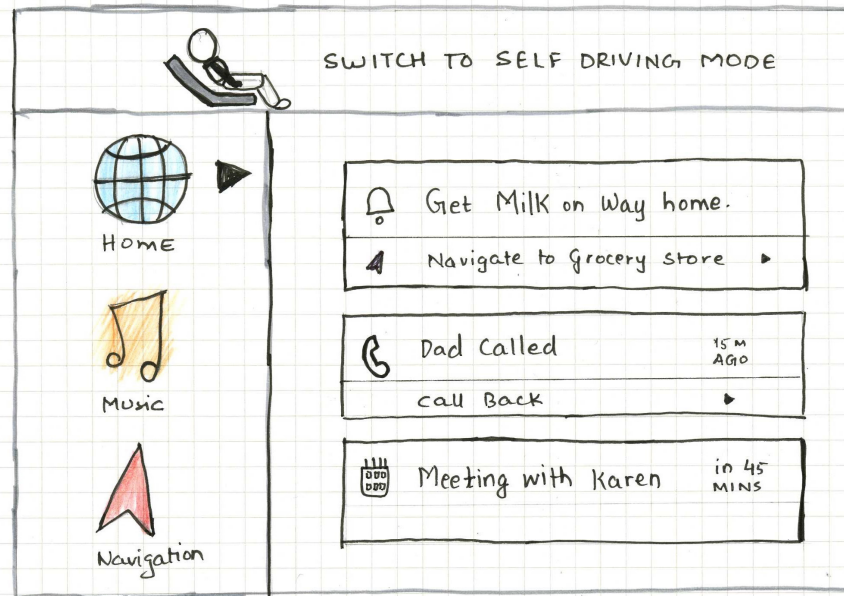 SWITCH TO SELF DRIVING MODE
HOME
Music
Navigation
Get Milk on Way home.
Navigate to Grocery store
Dad Called
15 M
AGO
Call Back
Meeting with Karen
in 45
MINS